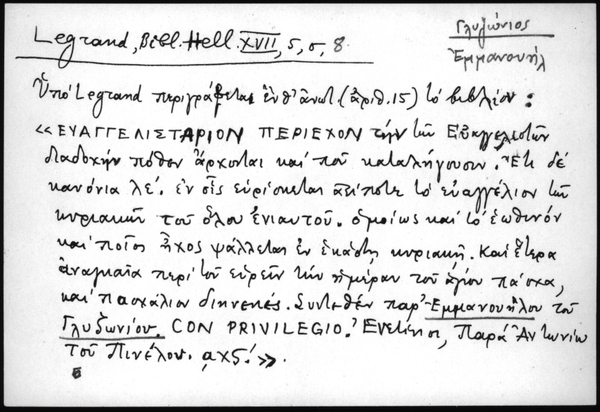 Legrand, Bibl. Hell. XVII, 5, σ, 8
Γλυζώνιος
Ἐμμανουήλ
Ὑπό Legrand περιγράφεται ἐνθ' ἀνωτ. (ἀριθ. 15) τό βιβλίον :
«ΕΥΑΓΓΕΛΙΣΤΑΡΙΟΝ ΠΕΡΙΕΧΟΝ τήν τῶν Εὐαγγελιστῶν
διαδοχήν πόθεν ἄρχονται καί ποῦ καταλήγουσιν. Ἔτι δέ
κανόνια λε΄. ἐν οἷς εὑρίσκεται τό εὐαγγέλιον τῶν
κυριακῶν τοῦ ὅλου ἐνιαυτοῦ. ὁμοίως καί τό ἑωθινόν
καί ποῖος ἦχος ψάλλεται ἐν ἑκάστῃ κυριακῇ. Καί ἕτερα
ἀναγκαῖα περί τοῦ εὑρεῖν τήν ἡμέραν τοῦ ἁγίου πάσχα,
καί πασχάλιον διηνεκές. Συντεθέν παρ' Ἐμμανουήλου τοῦ
Γλυζωνίου. CON PRIVILEGIO. Ἐνετίησι, Παρά Ἀντωνίω
τοῦ Πινέλου. αχϛ΄.».